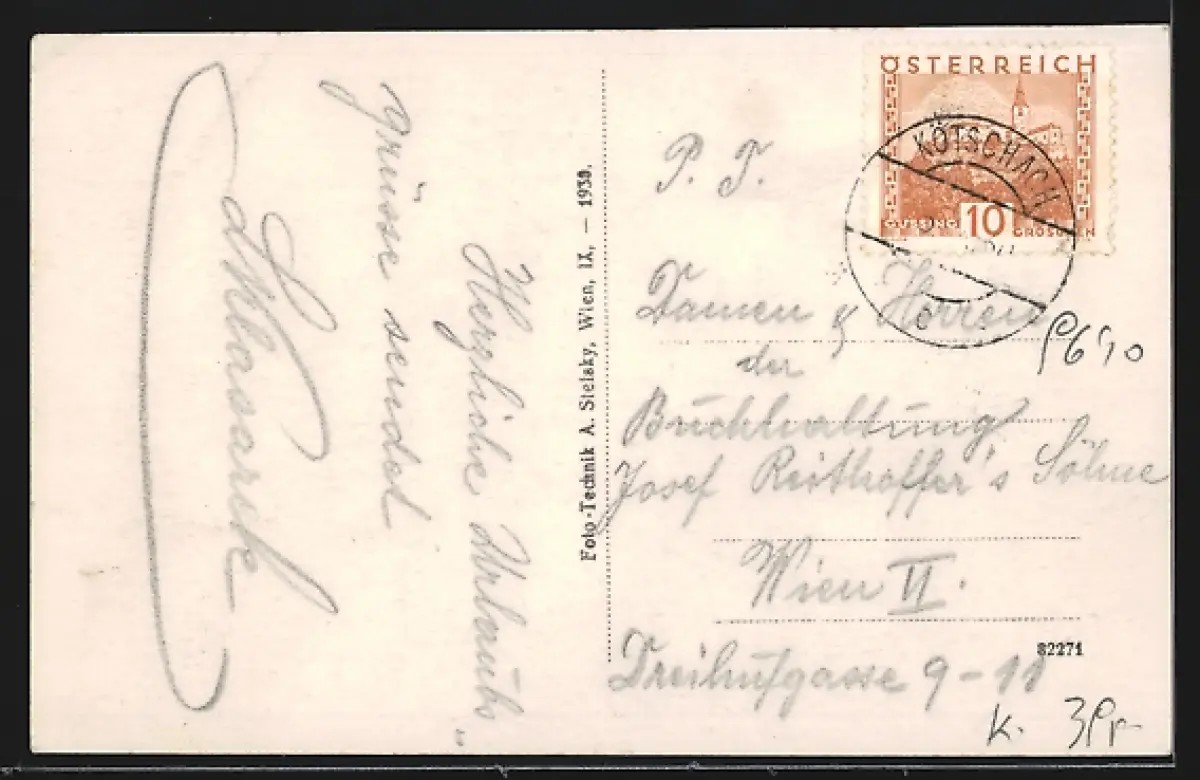 Herzliche Urlaubs „
grüsse sendet
Foto-Technik A. Stelsky, Wien, IX, — 1930.
ÖSTERREICH
GÜSSING 10 GROSCHEN
KÖTSCHACH
P. T.
Damen & Herren
der
Buchhaltung
Josef Reithoffer's Söhne
Wien VI.
Dreihufgasse 9-11
82271
K.